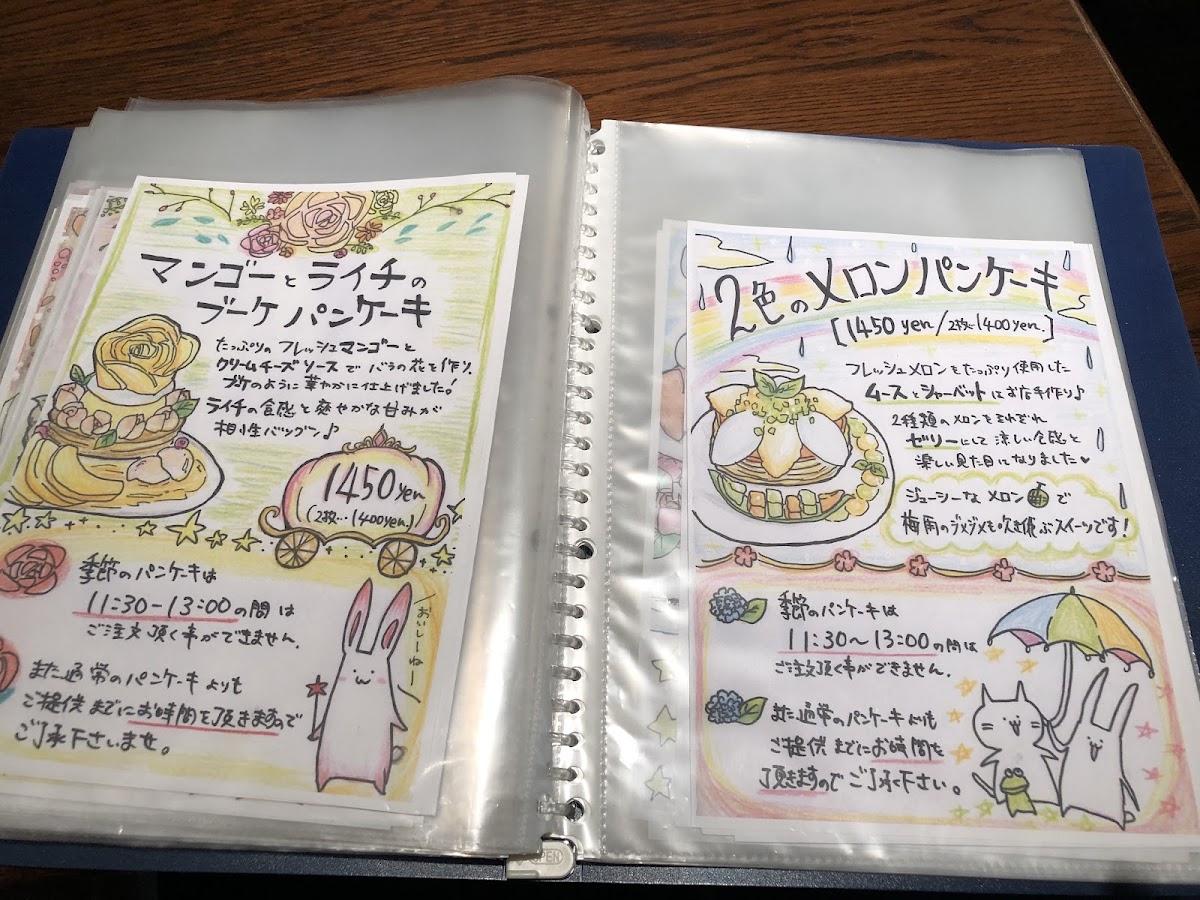 マンゴーとライチの
ブーケ パンケーキ
たっぷりの フレッシュマンゴーと
クリームチーズソースで バラの花を作り、
ブケのように 華やかに仕上げました!
ライチの食感と爽やかな甘みが
相性バツグン♪
1450yen
(2枚…1400yen.)
季節のパンケーキは
11:30-13:00の間は
ご注文頂く事ができません.
また通常のパンケーキよりも
ご提供までにお時間を頂きますので
ご了承下さいませ。
おいしーねー
2色のメロンパンケーキ
[1450yen/2枚…1400yen.]
フレッシュメロンをたっぷり使用した
ムースとシャーベットはお店手作り♪
2種類のメロンをそれぞれ
ゼリーにして涼しい食感と
楽しい見た目になりました♥
ジューシーなメロンで
梅雨のジメジメも吹き飛ぶスイーツです!
季節のパンケーキは
11:30~13:00の間は
ご注文頂く事ができません.
また通常のパンケーキよりも
ご提供までにお時間を
頂きますのでご了承下さい。
OPEN